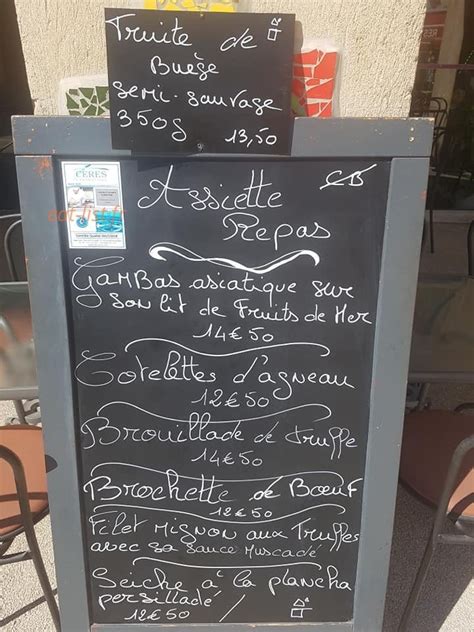 Truite de
Buège
semi-sauvage
350g
13,50
CÉRÈS
Assiette
CB
Repas
GAMBAS asiatique sur
son lit de Fruits de Mer
14€50
Cotelettes d'agneau
12€50
Brouillade de truffe
14€50
Brochette de Bœuf
12€50
Filet Mignon aux Truffes
avec sa sauce Muscadé
Seiche a' la plancha
persilladé
12€50